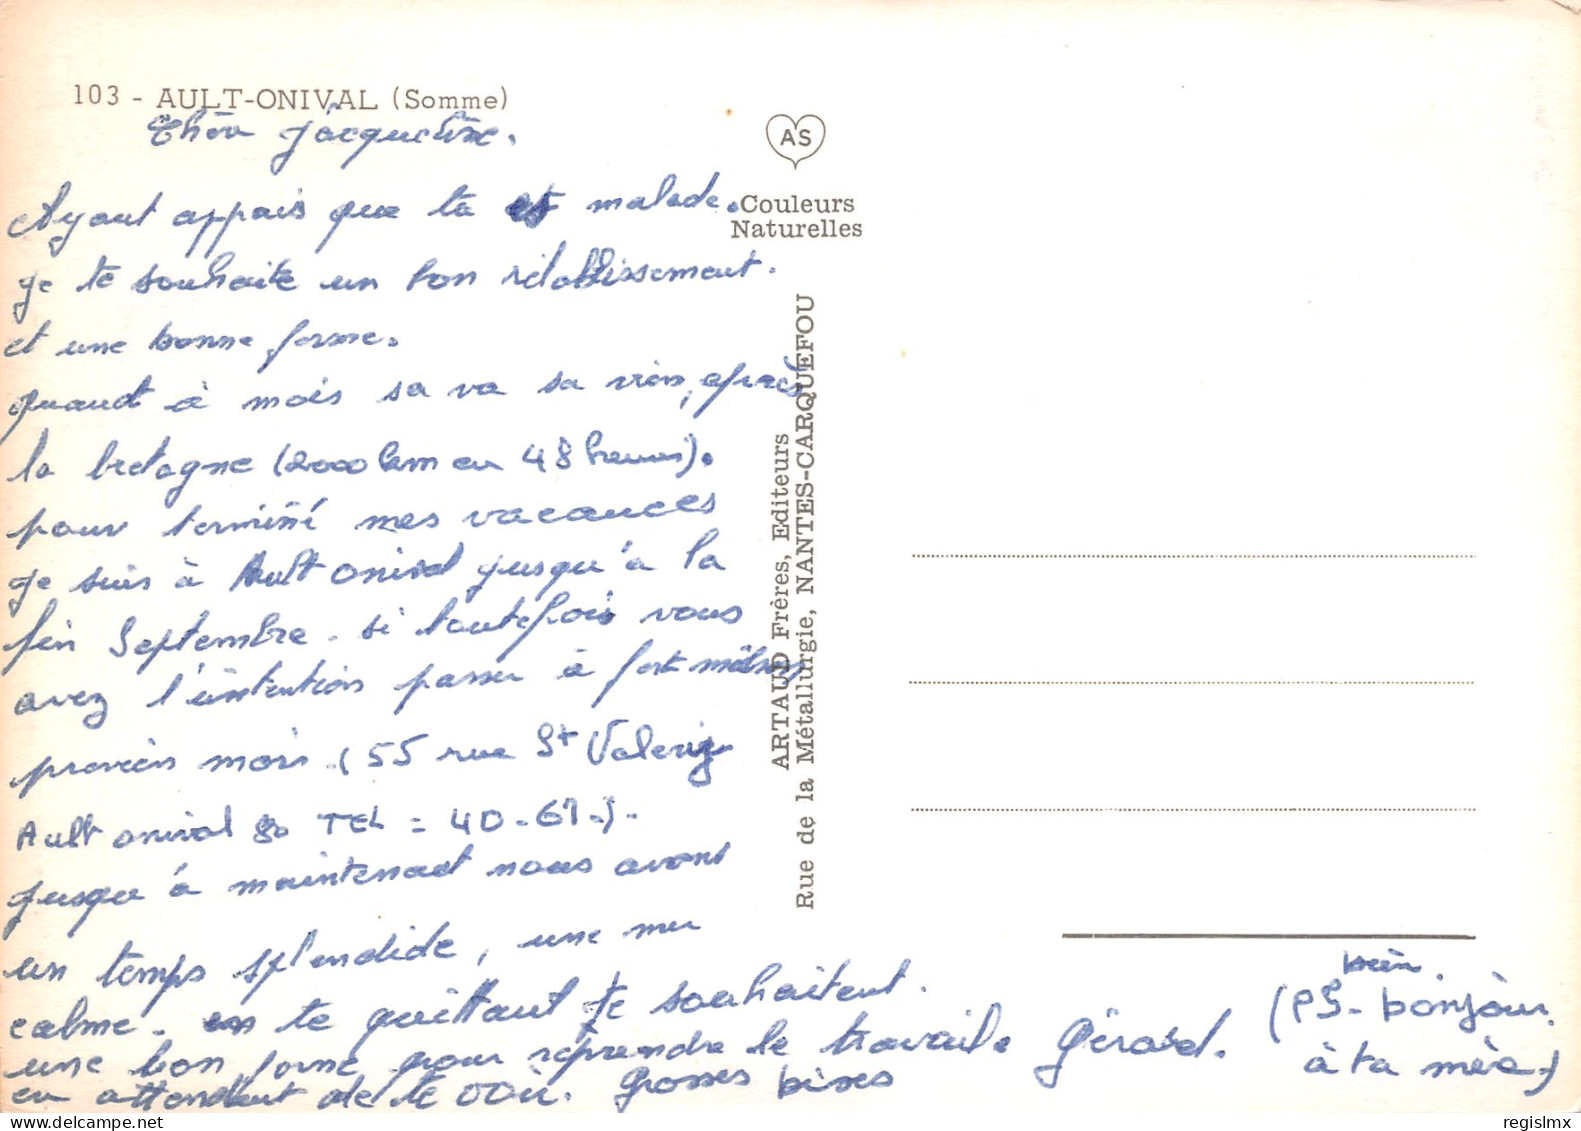 103 - AULT-ONIVAL (Somme)
Chère Jacqueline.
Ayant appais que ta est malade.
je te souhaite un bon rétablissement.
et une bonne forme.
quand à mois sa va sa vien, après
la bretagne (2000 km en 48 heures).
pour terminé mes vacances
je suis à Ault onival jusqu'à la
fin Septembre. si toutefois vous
avez l'intention passer à fort
mois. (55 rue St Valeriz
Ault onival 80 TEL = 40-61-).
jusqu'à maintenant nous avons
un temps splendide, une mer
calme. en te quittant je souhaitent.
une bon forme pour reprendre le travaile Gérard.
en attendant de te voir. Grosses bises
(PS- bonjour.
à ta mère.)
AS
Couleurs
Naturelles
ARTAUD Frères, Editeurs
Rue de la Métallurgie, NANTES-CARQUEFOU
regislmx